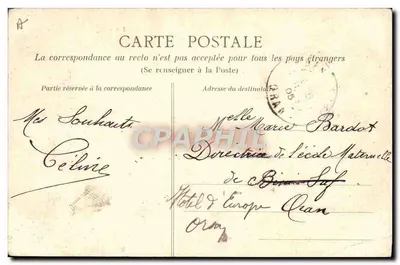 CARTE POSTALE
La correspondance au recto n'est pas acceptée pour tous les pays étrangers
(Se renseigner à la Poste)
Partie réservée à la correspondance
Adresse du destinataire
Mes Souhaits
Céline
Melle Marie Bardot
Directrice de l'école Maternelle
de
Hôtel d'Europe Oran
Oran
ORAN
Cartepostale